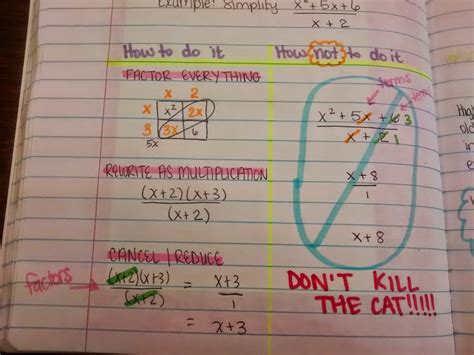 Example: Simplify x²+5x+6
x + 2
How to do it
FACTOR EVERYTHING
x 2
x x² 2x
3 3x 6
5x
REWRITE AS MULTIPLICATION
(x+2)(x+3)
(x+2)
CANCEL / REDUCE
factors
(x+2)(x+3) = x+3
(x+2) 1
= x+3
How not to do it
terms
x² + 5x + 6 3
x + 2 1
x+8
1
x+8
DON'T KILL
THE CAT!!!!!